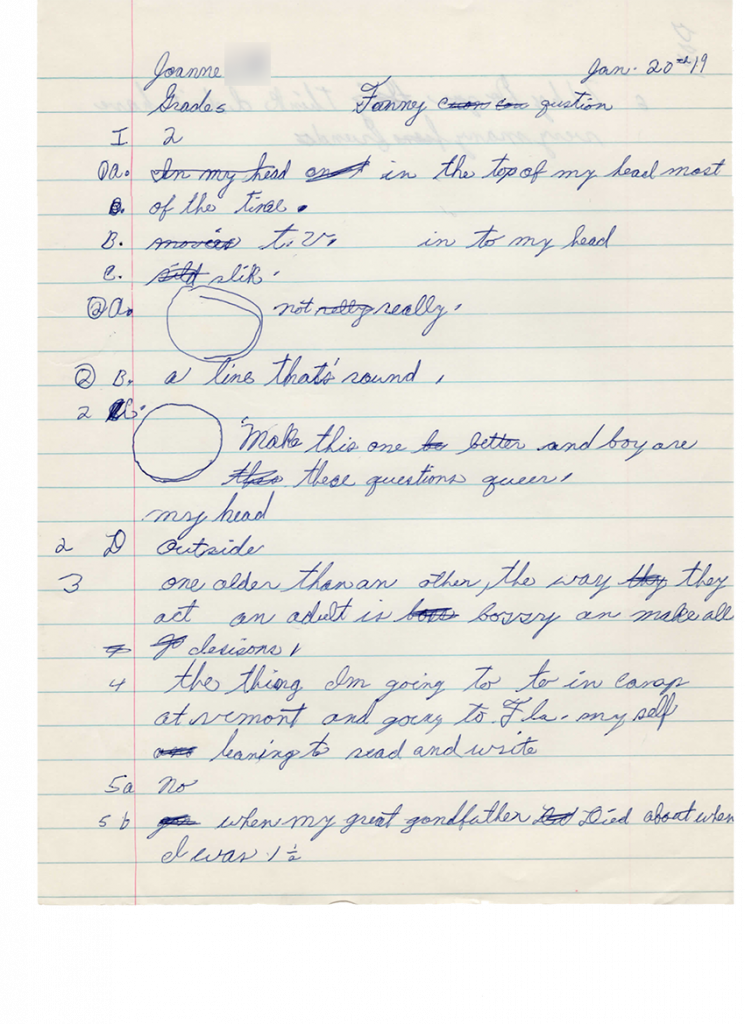 Joanne
Jan. 20th 19
Grades
Fanney qustion
I 2
1a. In my head in the top of my head most
of the time.
B. movies t.v. in to my head
C. slik.
2 A. not really really.
2 B. a line that's round,
2 C.
"Make this one better and boy are
these questions queer,
my head
2 D outside
3 one older than an other, the way they
act an adult is bossy an make all
desisons,
4 the thing Im going to to in camp
at vermont and going to Fla. my self
leaning to read and write
5a No
5b when my great gandfather Died about when
I was 1 ½